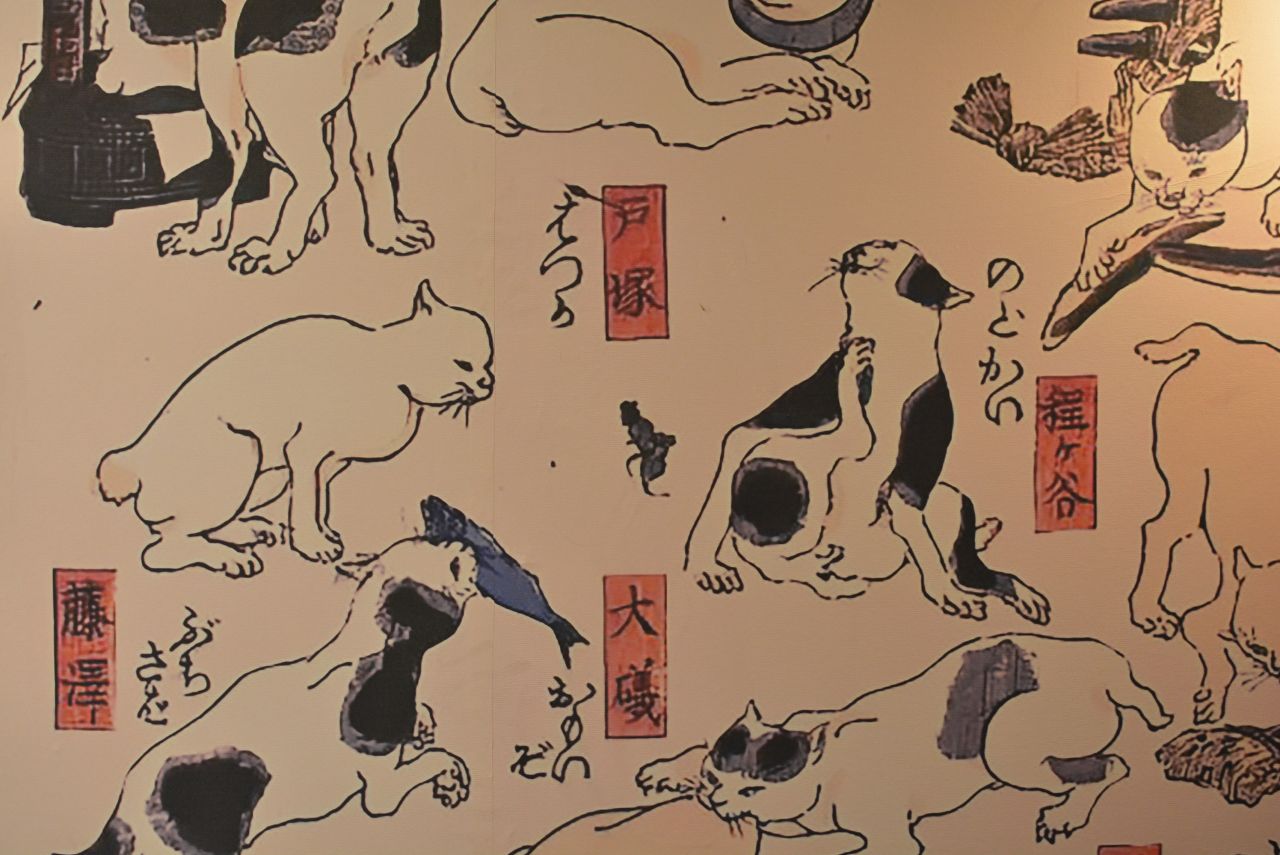 程ヶ谷
のどかい
戸塚
はつか
大磯
おもい
ぞ
藤澤
ぶち
さば